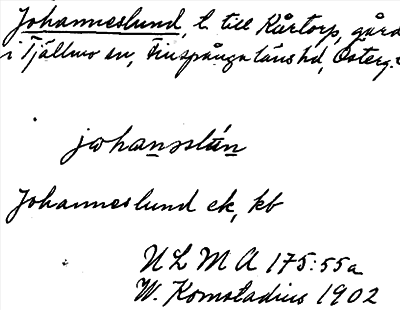 Johanneslund, l. till Kårtorp, gård
i Tjällmo sn, Finspånga läns hd, Österg.
johansslún
Johanneslund ek, kb
ULMA 175:55a
W. Komstadius 1902